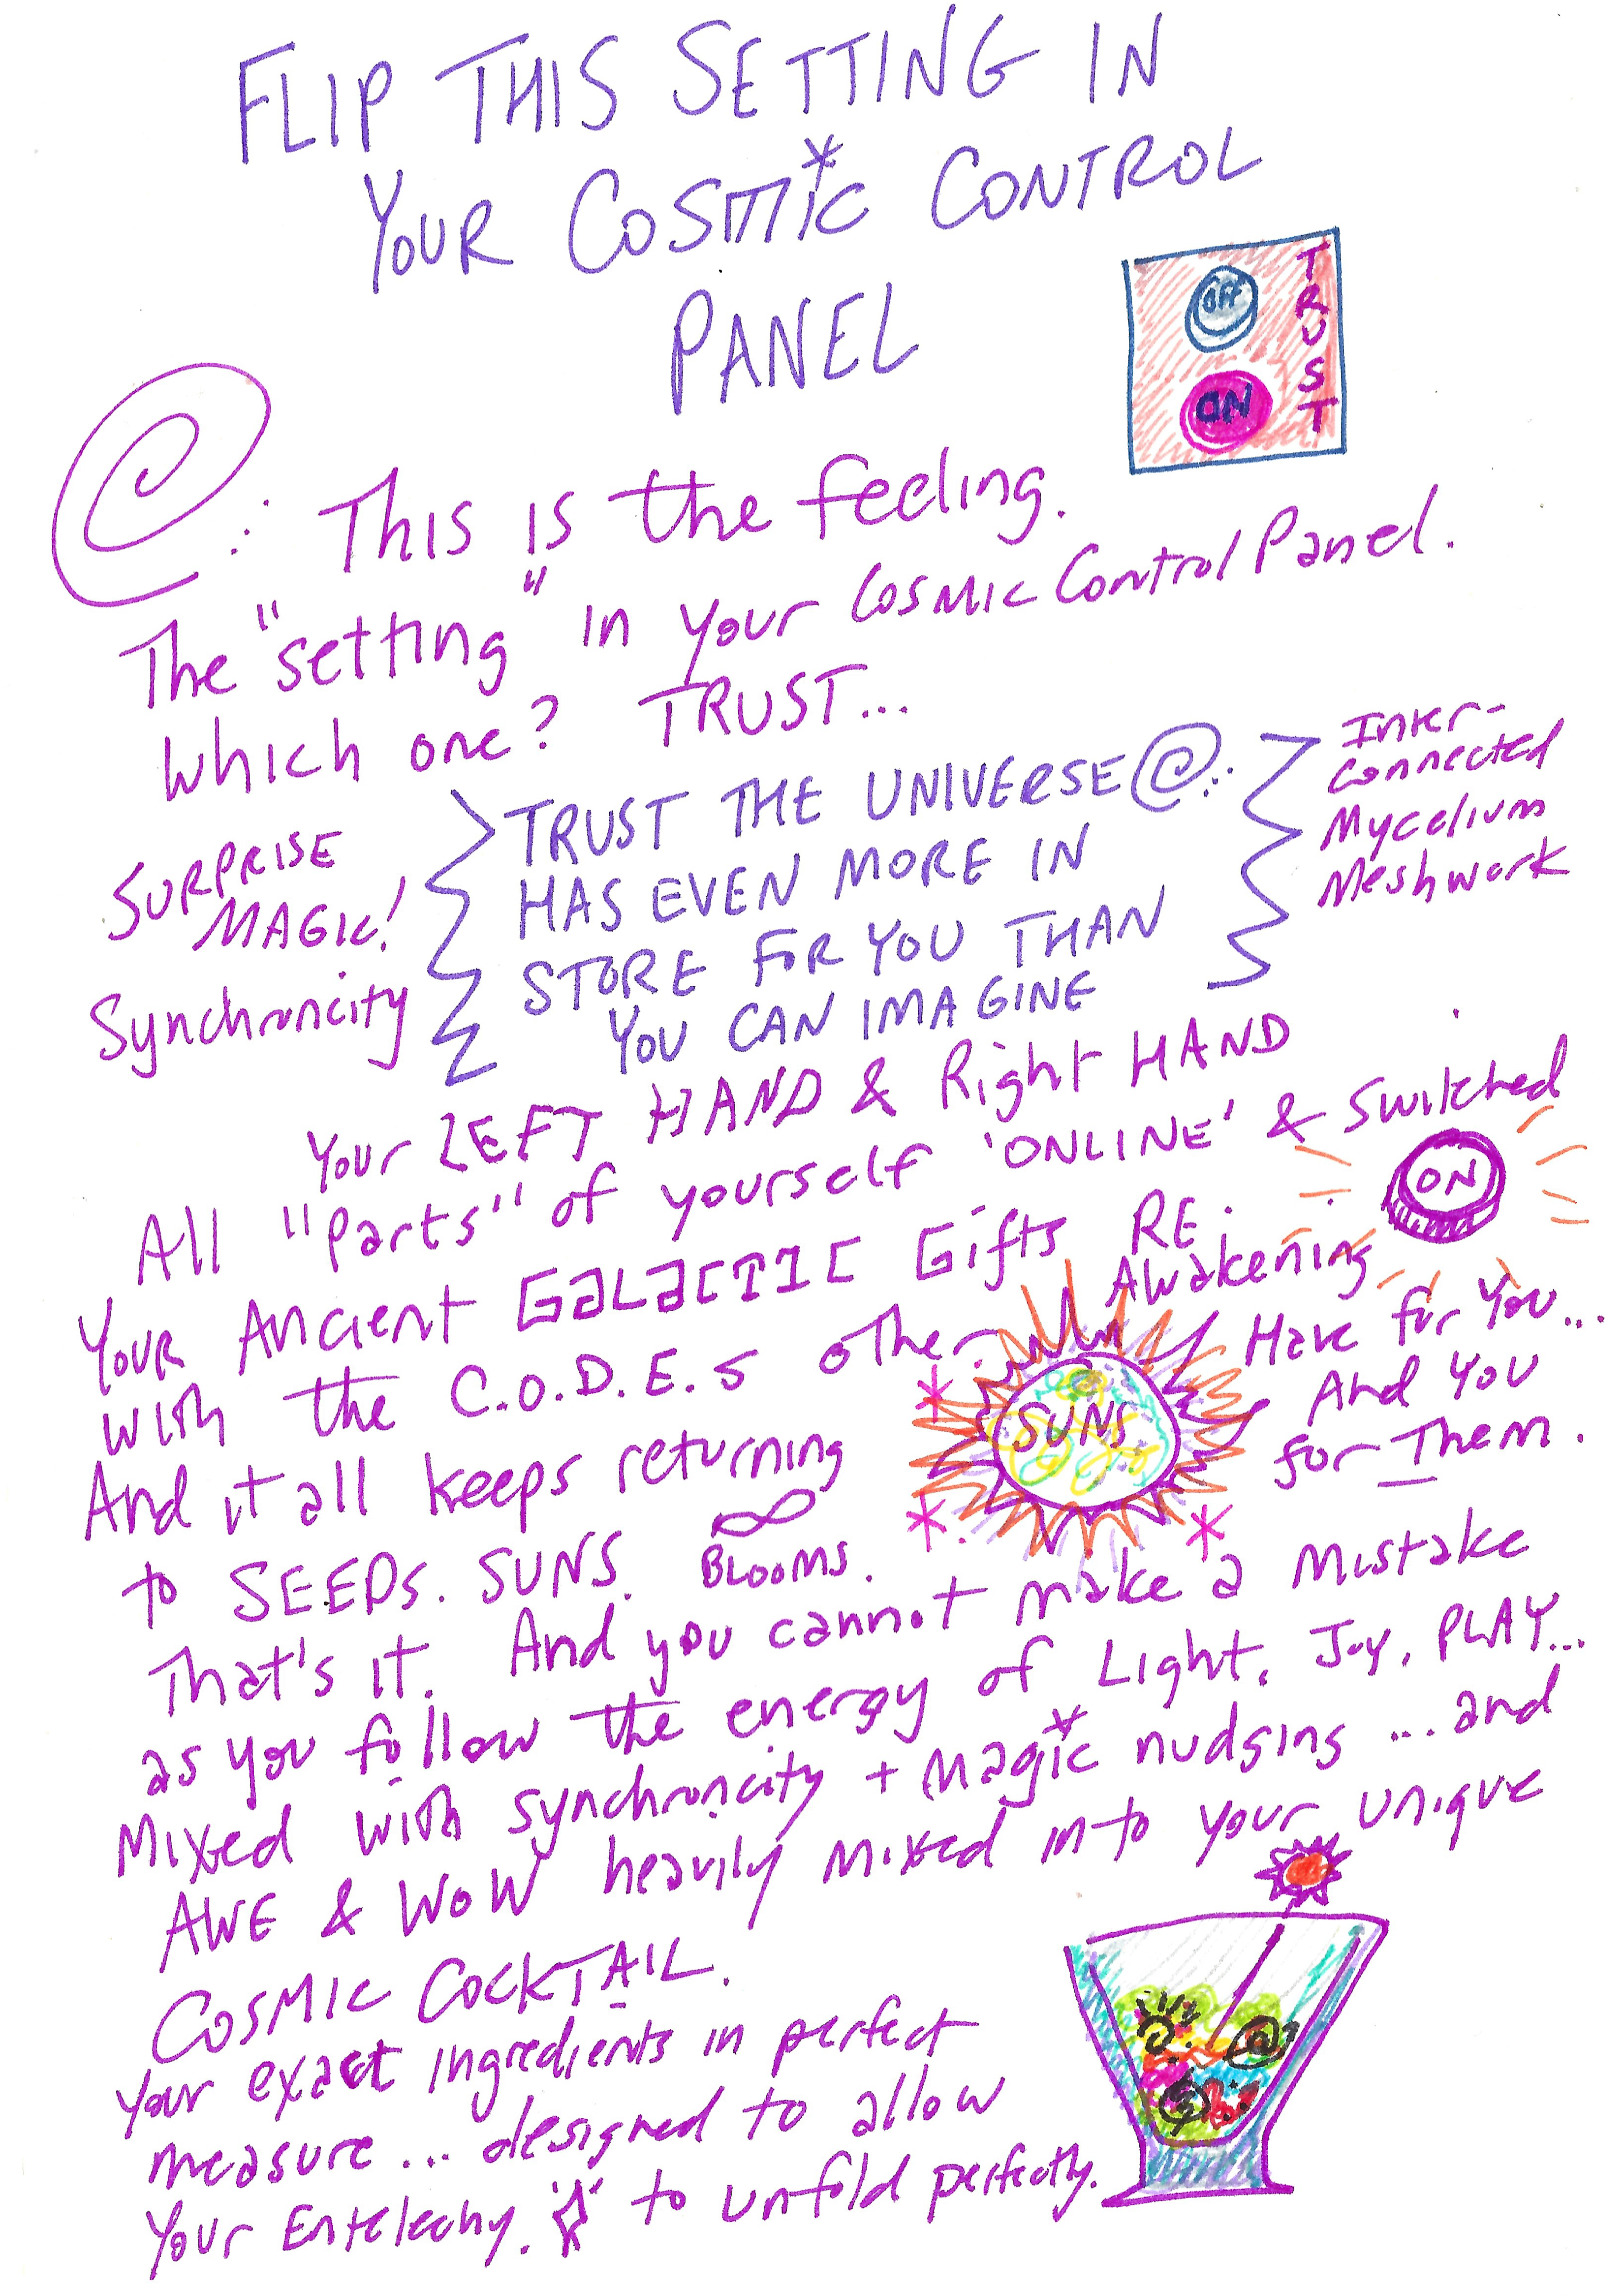 FLIP THIS SETTING IN
YOUR COSMIC CONTROL
PANEL
OFF
ON
TRUST
This is the feeling.
The "setting" in your Cosmic Control Panel.
Which one? TRUST...
SURPRISE
MAGIC!
Synchroncity
TRUST THE UNIVERSE
HAS EVEN MORE IN
STORE FOR YOU THAN
YOU CAN IMAGINE
Inter-
connected
Mycelium
Meshwork
Your LEFT HAND & Right HAND
All "Parts" of yourself 'ONLINE' & Switched
ON
Your Ancient GALACTIC Gifts RE.
Awakening
with the C.O.D.E.S other
SUNS
Have for You...
And You
for Them.
And it all keeps returning
to SEEDS. SUNS. BLOOMS.
That's it. And you cannot make a mistake
as you follow the energy of Light, Joy, PLAY...
Mixed with synchroncity + Magic nudging ... and
AWE & WOW heavily mixed into your unique
COSMIC COCKTAIL.
Your exact ingredients in perfect
measure... designed to allow
Your Entelechy. to unfold perfectly.